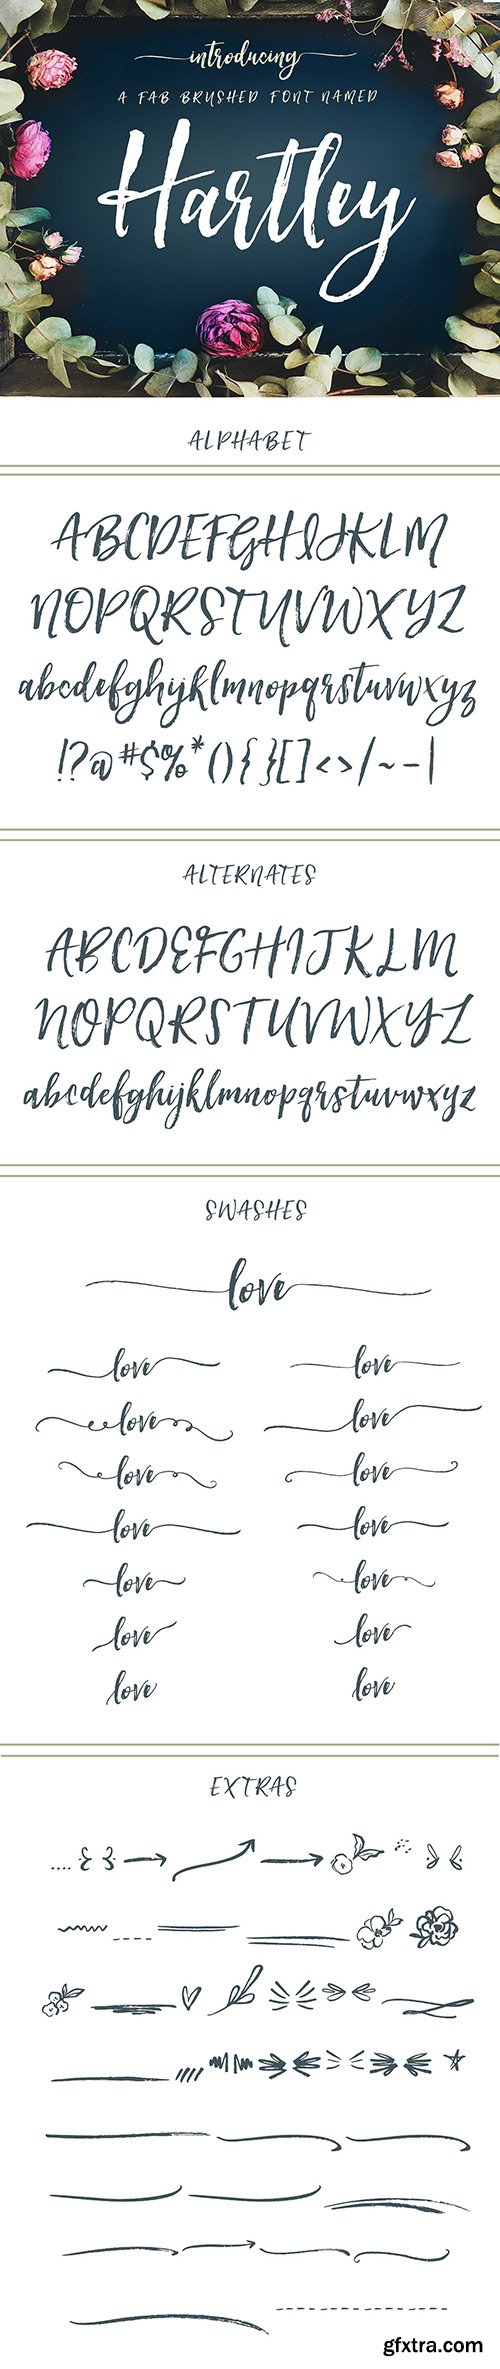 introducing
A FAB BRUSHED FONT NAMED
Hartley
ALPHABET
ABCDEFGHIJKLM
NOPQRSTUVWXYZ
abcdefghijklmnopqrstuvwxyz
!?@#$%*(){}[]<>/~-|
ALTERNATES
ABCDEFGHIJKLM
NOPQRSTUVWXYZ
abcdefghijklmnopqrstuvwxyz
SWASHES
love
love love
love love
love love
love love
love love
love love
love love
EXTRAS
gfxtra.com